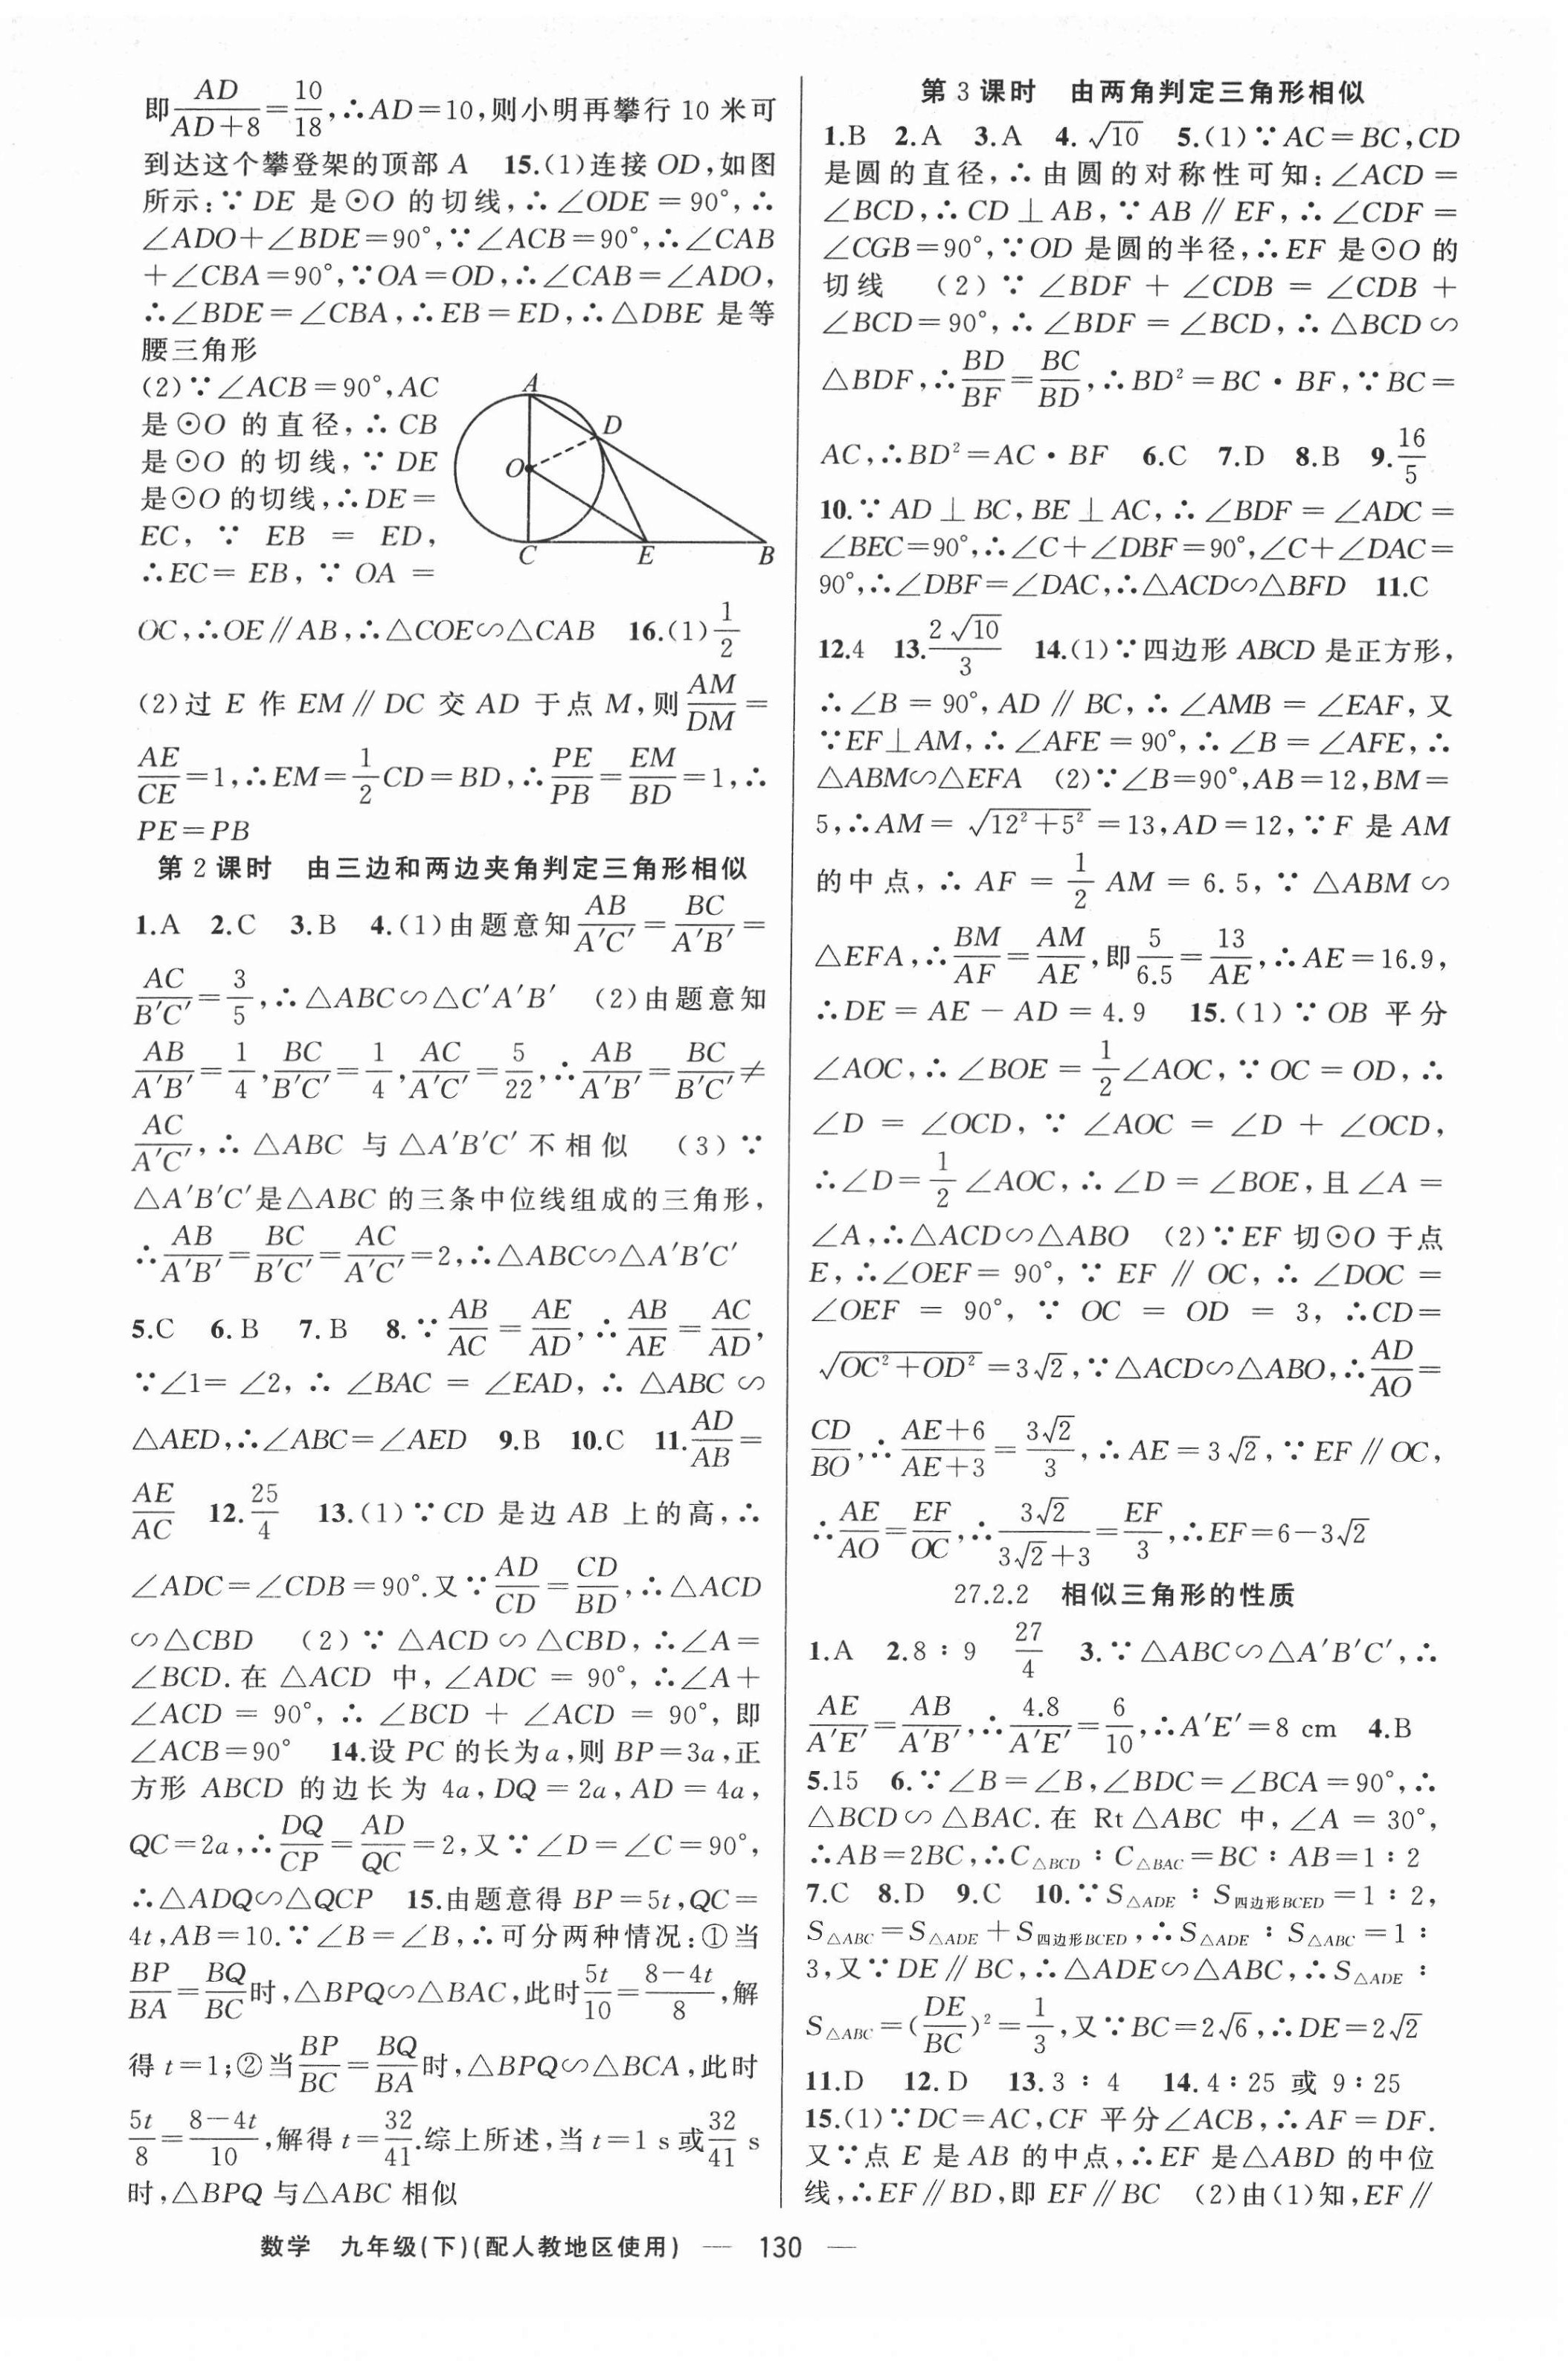 即AD/(AD+8)=10/18,∴AD=10,则小明再攀行 10 米可
到达这个攀登架的顶部 A　15.(1)连接 OD,如图
所示:∵ DE 是⊙O 的切线,∴∠ODE=90°,∴
∠ADO+∠BDE=90°,∵∠ACB=90°,∴∠CAB
+∠CBA=90°,∵OA=OD,∴∠CAB=∠ADO,
∴∠BDE=∠CBA,∴EB=ED,∴△DBE 是等
腰三角形
(2)∵∠ACB=90°,AC
是⊙O 的直径,∴CB
是⊙O 的切线,∵DE
是⊙O 的切线,∴DE=
EC,∵ EB = ED,
∴EC=EB,∵ OA =
A
D
O
C
E
B
OC,∴OE∥AB,∴△COE∽△CAB　16.(1)1/2
(2)过 E 作 EM∥DC 交 AD 于点 M,则AM/DM=
AE/CE=1,∴EM=1/2CD=BD,∴PE/PB=EM/BD=1,∴
PE=PB
第 2 课时　由三边和两边夹角判定三角形相似
1.A　2.C　3.B　4.(1)由题意知AB/A′C′=BC/A′B′=
AC/B′C′=3/5,∴△ABC∽△C′A′B′　(2)由题意知
AB/A′B′=1/4,BC/B′C′=1/4,AC/A′C′=5/22,∴AB/A′B′=BC/B′C′≠
AC/A′C′,∴△ABC 与△A′B′C′不相似　(3)∵
△A′B′C′是△ABC 的三条中位线组成的三角形,
∴AB/A′B′=BC/B′C′=AC/A′C′=2,∴△ABC∽△A′B′C′
5.C　6.B　7.B　8.∵AB/AC=AE/AD,∴AB/AE=AC/AD,
∵∠1=∠2,∴∠BAC=∠EAD,∴△ABC∽
△AED,∴∠ABC=∠AED　9.B　10.C　11.AD/AB=
AE/AC　12.25/4　13.(1)∵CD 是边 AB 上的高,∴
∠ADC=∠CDB=90°.又∵AD/CD=CD/BD,∴△ACD
∽△CBD　(2)∵△ACD∽△CBD,∴∠A=
∠BCD.在△ACD 中,∠ADC=90°,∴∠A+
∠ACD=90°,∴∠BCD+∠ACD=90°,即
∠ACB=90°　14.设 PC 的长为a,则 BP=3a,正
方形 ABCD 的边长为 4a,DQ=2a,AD=4a,
QC=2a,∴DQ/CP=AD/QC=2,又∵∠D=∠C=90°,
∴△ADQ∽△QCP　15.由题意得 BP=5t,QC=
4t,AB=10.∵∠B=∠B,∴可分两种情况:①当
BP/BA=BQ/BC时,△BPQ∽△BAC,此时5t/10=(8-4t)/8,解
得 t=1;②当BP/BC=BQ/BA时,△BPQ∽△BCA,此时
5t/8=(8-4t)/10,解得t=32/41.综上所述,当t=1 s或32/41 s
时,△BPQ 与△ABC 相似
第 3 课时　由两角判定三角形相似
1.B　2.A　3.A　4.√10　5.(1)∵AC=BC,CD
是圆的直径,∴由圆的对称性可知:∠ACD=
∠BCD,∴CD⊥AB,∵AB∥EF,∴∠CDF=
∠CGB=90°,∵OD 是圆的半径,∴EF 是⊙O 的
切线　(2)∵∠BDF+∠CDB=∠CDB+
∠BCD=90°,∴∠BDF=∠BCD,∴△BCD∽
△BDF,∴BD/BF=BC/BD,∴BD²=BC·BF,∵BC=
AC,∴BD²=AC·BF　6.C　7.D　8.B　9.16/5
10.∵AD⊥BC,BE⊥AC,∴∠BDF=∠ADC=
∠BEC=90°,∴∠C+∠DBF=90°,∠C+∠DAC=
90°,∴∠DBF=∠DAC,∴△ACD∽△BFD　11.C
12.4　13.2√10/3　14.(1)∵四边形 ABCD 是正方形,
∴∠B=90°,AD∥BC,∴∠AMB=∠EAF,又
∵EF⊥AM,∴∠AFE=90°,∴∠B=∠AFE,∴
△ABM∽△EFA　(2)∵∠B=90°,AB=12,BM=
5,∴AM=√(12²+5²)=13,AD=12,∵F 是 AM
的中点,∴AF=1/2AM=6.5,∵△ABM∽
△EFA,∴BM/AF=AM/AE,即5/6.5=13/AE,∴AE=16.9,
∴DE=AE-AD=4.9　15.(1)∵OB 平分
∠AOC,∴∠BOE=1/2∠AOC,∵OC=OD,∴
∠D=∠OCD,∵∠AOC=∠D+∠OCD,
∴∠D=1/2∠AOC,∴∠D=∠BOE,且∠A=
∠A,∴△ACD∽△ABO　(2)∵EF 切⊙O 于点
E,∴∠OEF=90°,∵EF∥OC,∴∠DOC=
∠OEF=90°,∵OC=OD=3,∴CD=
√(OC²+OD²)=3√2,∵△ACD∽△ABO,∴AD/AO=
CD/BO,∴(AE+6)/(AE+3)=3√2/3,∴AE=3√2,∵EF∥OC,
∴AE/AO=EF/OC,∴3√2/(3√2+3)=EF/3,∴EF=6-3√2
27.2.2　相似三角形的性质
1.A　2.8∶9　27/4　3.∵△ABC∽△A′B′C′,∴
AE/A′E′=AB/A′B′,∴4.8/A′E′=6/10,∴A′E′=8 cm　4.B
5.15　6.∵∠B=∠B,∠BDC=∠BCA=90°,∴
△BCD∽△BAC.在 Rt△ABC 中,∠A=30°,
∴AB=2BC,∴C△BCD∶C△BAC=BC∶AB=1∶2
7.C　8.D　9.C　10.∵S△ADE∶S四边形BCED=1∶2,
S△ABC=S△ADE+S四边形BCED,∴S△ADE∶S△ABC=1∶
3,又∵DE∥BC,∴△ADE∽△ABC,∴S△ADE∶
S△ABC=(DE/BC)²=1/3,又∵BC=2√6,∴DE=2√2
11.D　12.D　13.3∶4　14.4∶25 或 9∶25
15.(1)∵DC=AC,CF 平分∠ACB,∴AF=DF.
又∵点 E 是 AB 的中点,∴EF 是△ABD 的中位
线,∴EF∥BD,即 EF∥BC　(2)由(1)知,EF∥
数学　九年级(下)(配人教地区使用)　— 130 —